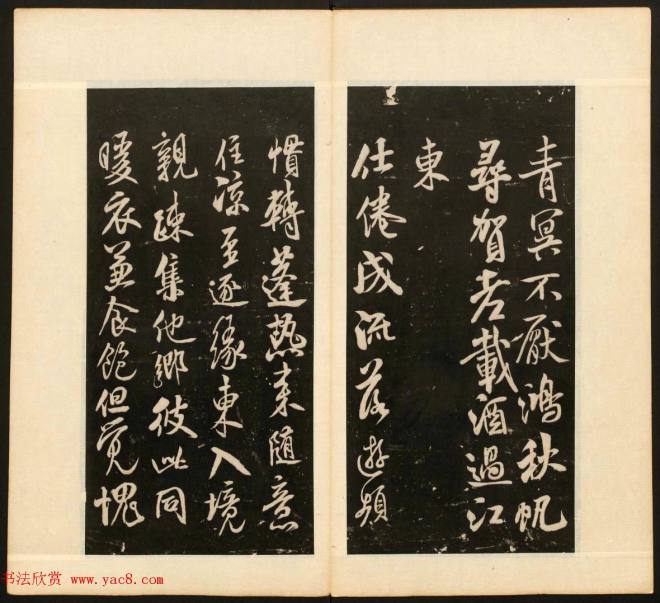 青冥不厭鴻秋帆
尋賀老載酒過江
東
仕倦成流落遊頻
慣轉蓬熱來隨意
住涼至逐緣東入境
親疎集他鄉彼此同
暖衣兼食飽但覺愧
书法欣赏 www.yac8.com